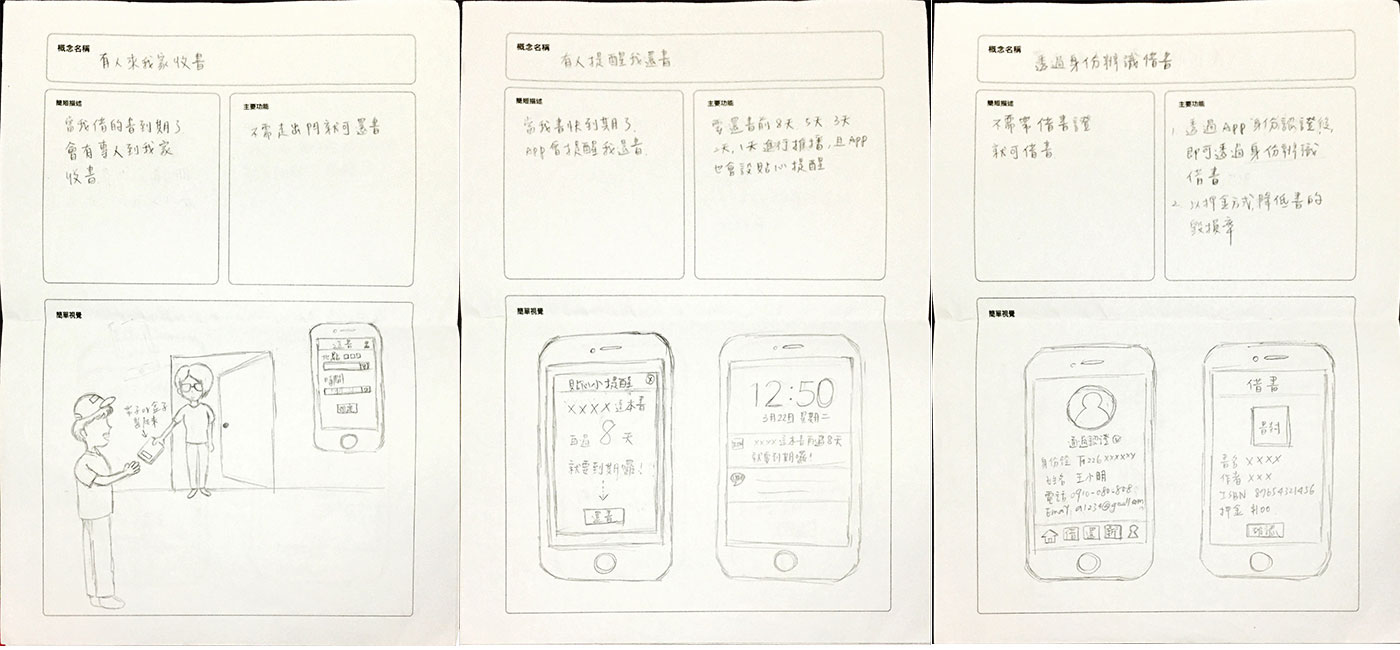 概念名稱
有人來我家收書
簡短描述
當我借的書到期了
會有專人到我家
收書
主要功能
不需走出門就可還書
簡單視覺
還書
地點
時間
概念名稱
有人提醒我還書
簡短描述
當我書快到期了
APP會提醒我還書
主要功能
要還書前8天 5天 3天
2天, 1天進行推播, 且APP
也會設貼心提醒
簡單視覺
貼心小提醒
XXXX這本書
再過8天
就要到期囉!
還書
12:50
3月22日 星期二
XXXX這本書再過8天
就要到期囉!
概念名稱
透過身份辨識借書
簡短描述
不需帶借書證
就可借書
主要功能
1. 透過APP身份認證後,
即可透過身份辨識
借書
2. 以押金方式, 降低書的
毀損率
簡單視覺
通過認證
身份證
姓名 王小明
電話 0910-080808
Email: a1234@gmail.com
借 還
借書
書封
書名 XXXX
作者 XXX
ISBN 87654321456
押金 $100
確認